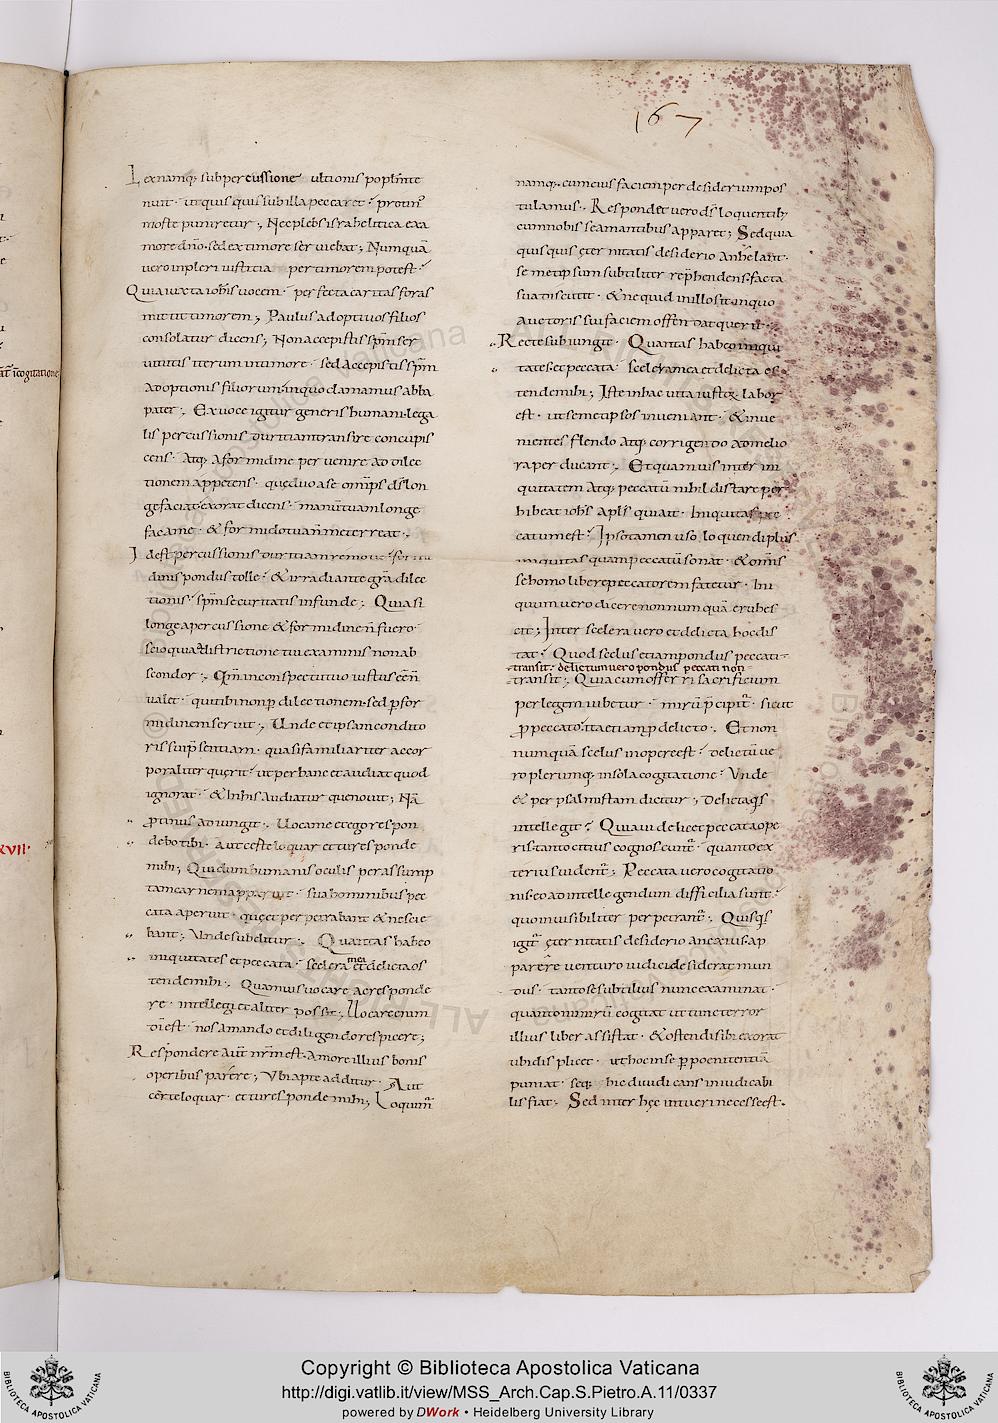 167
Lex namq; sub percussione ultionis poplm te
nuit · ut quis quis sub illa peccaret · protin'
morte puniretur ; Nec plebs israhelitica ex a
more dno · sed ex timore serviebat ; Numquā
vero inpleri iustitia per timorem potest ·
Quia iuxta iohis vocem · perfecta caritas foras
mittit timorem ; Paulus adoptivos filios
consolatur dicens ; Non accepistis spm ser
vitutis iterum in timore · sed accepistis spm
adoptionis filiorum · in quo clamamus abba
pater ; Ex voce igitur generis humani · lega
lis percussionis duritiam transire concupis
cens · atq; a formidine pervenire ad dilec
tionem appetens · quę duo a se omps ds lon
ge faciat · exorat dicens · manū tuam longe
fac a me · & formido tua n̄ me terreat ;
Id est percussionis duritiam remove · formi
dinis pondus tolle · & irradiante gra dilec
tionis · spm securitatis infunde ; Quia si
longe a percussione & formidine n̄ fuero ·
scio quia a districtione tui examinis non ab
scondor ; Qm̄ in conspectu tuo iustus ee n̄
valet · qui tibi non p dilectionem · sed p for
midinem servit ; Unde et ipsam condito
ris sui psentiam · quasi familiariter ac cor
poraliter quęrit · ut per hanc et audiat quod
ignorat · & in his audiatur que novit ; Nā
ptinus adiungit ; Voca me et ego respon
debo tibi · aut certe loquar et tu responde
mihi ; Qui dum humanis oculis per assump
tam carnem apparuit · sua hominibus pec
cata aperuit · quę et perpetrabant & nescie
bant ; Unde subditur ; Quantas habeo
iniquitates et peccata · scelera mea et delicta os
tende mihi ; Quamvis vocare ac responde
re · intellegi et aliter possit ; Vocare enim
dī est · nos amando et diligendo respicere ;
Respondere aut̄ nr̄m est · amore illius bonis
operibus parere ; Ubi apte additur · Aut
certe loquar · et tu responde mihi ; Loquim̄
namq; cum eius faciem per desiderium pos
tulamus ; Respondet vero ds loquentib;
cum nobis se amantibus apparet ; Sed quia
quisquis ęternitatis desiderio anhelant ·
semetipsum subtiliter rephendens · facta
sua discutit · & ne quid in illo sit · in quo
auctoris sui faciem offendat querit ;
Recte subiungit · Quantas habeo iniqui
tates · et peccata · scelera mea et delicta os
tende mihi ; Iste in hac vita iustoȝ labor
est · ut semetipsos inveniant · & inve
nientes flendo atq; corrigendo ad melio
ra perducant ; Et quamvis inter ini
quitatem atq; peccatū nihil distare per
hibeat iohs apls qui ait · Iniquitas pec
catum est · Ipso tamen uso loquendi plus
iniquitas quam peccatū sonat · & omis
se homo libere peccatorem fatetur · Ini
quum vero dicere nonnumquā erubes
cit ; Inter scelera vero et delicta hoc dis
tat · Quod scelus etiam pondus peccati
transit · delictum vero pondus peccati non
transit ; Quia cum offerri sacrificium
per legem iubetur · nimirū pcipit̄ · sicut
p peccato · ita etiam p delicto ; Et non
numquā scelus in opere est · delictū ve
ro plerumq; in sola cogitatione · Unde
& per psalmistam dicitur ; Delicta q̄s
intellegit · Quia videlicet peccata ope
ris · tanto citius cognoscunt̄ · quanto ex
terius videnī ; Peccata vero cogitatio
nis · eo ad intellegendum difficilia sunt ·
quo invisibiliter perpetrant̄ ; Quisq̄s
igit̄ ęternitatis desiderio anexius · ap
parere venturo iudici desiderat mun
dus · tanto se subtilius nunc examinat ·
quanto nimirū cogitat ut tunc terror
illius liber assistat · & ostendi sibi exorat
ubi displicet · ut hoc in se p poenitentiā
puniat · seq; hic diiudicans iniudicabi
lis fiat ; Sed inter hęc intueri necesse est ·
XVII·
Copyright © Biblioteca Apostolica Vaticana
http://digi.vatlib.it/view/MSS_Arch.Cap.S.Pietro.A.11/0337
powered by DWork • Heidelberg University Library
BIBLIOTECA APOSTOLICA VATICANA
BIBLIOTECA APOSTOLICA VATICANA